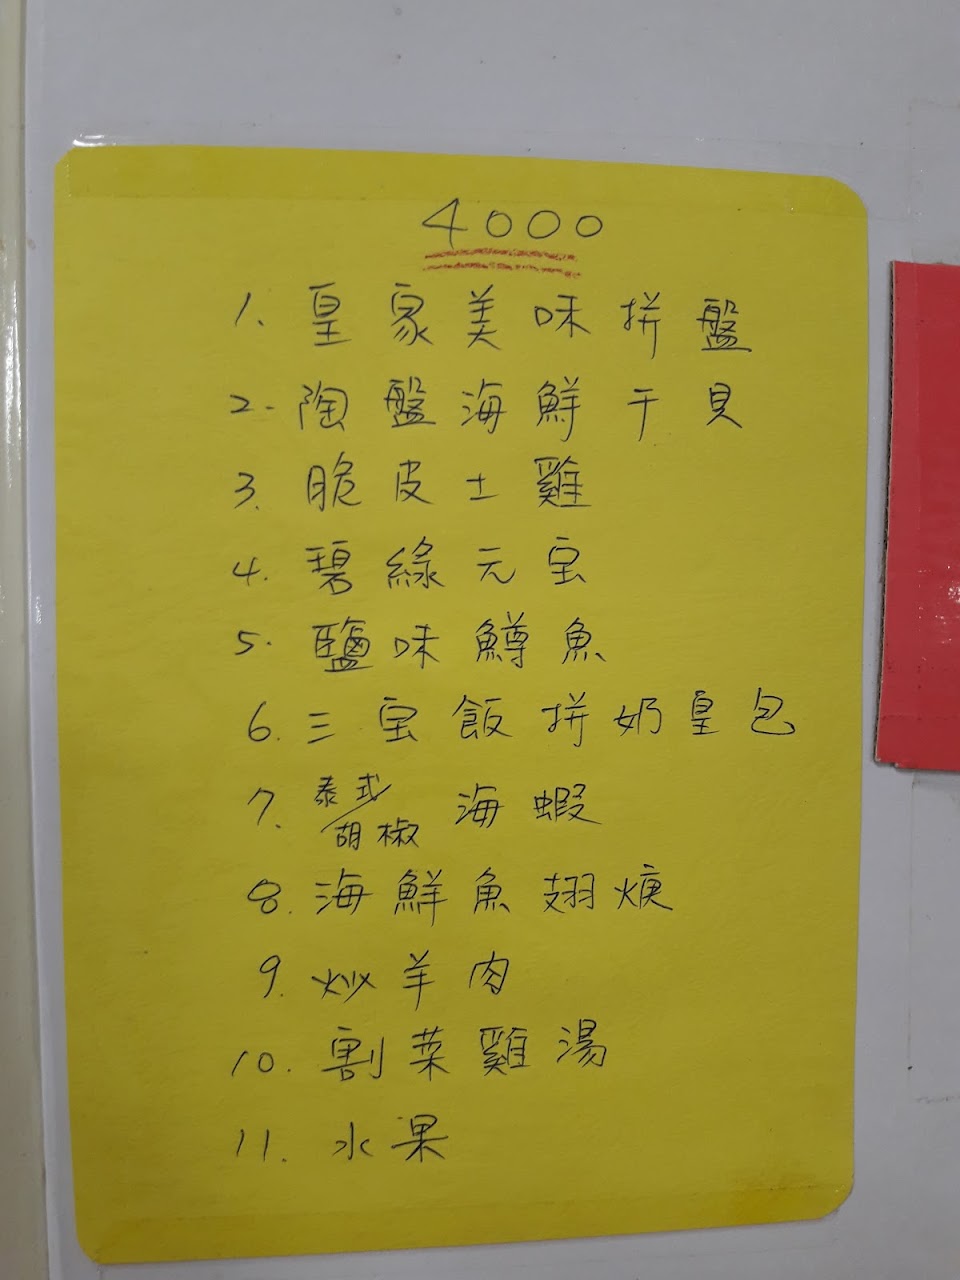 4000
1. 皇家美味拼盤
2. 陶盤海鮮干貝
3. 脆皮土雞
4. 碧綠元宝
5. 鹽味鱒魚
6. 三宝飯拼奶皇包
7. 泰式/胡椒 海蝦
8. 海鮮魚翅焿
9. 炒羊肉
10. 割菜雞湯
11. 水果